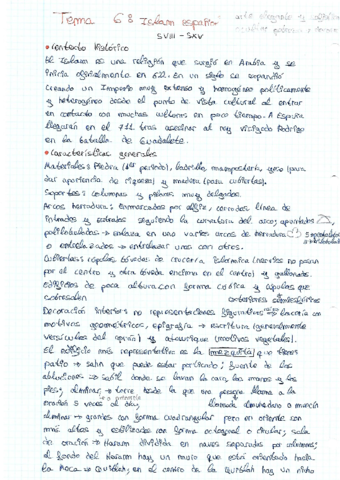 Tema 6: Islam español
SVIII - SXV
• Contexto histórico
El Islam es una religión que surgió en Arabia y se
inicia oficialmente en 622. En un siglo se expandió
creando un Imperio muy extenso y homogéneo políticamente
y heterogéneo desde el punto de vista cultural al entrar
en contacto con muchas culturas en poco tiempo. A España
llegarán en el 711 tras asesinar al rey visigodo Rodrigo
en la batalla de Guadalete.
• Características generales
Materiales: Piedra (1er periodo), ladrillo, mampostería, yeso (para
dar apariencia de riqueza) y madera (para cubiertas).
Soportes: columnas y pilares muy delgados.
Arcos: herradura enmarcados por alfiz, cerrados línea de
intradós y extradós siguiendo la curvatura del arco, apuntados
polilobulados → enlaza en uno varios arcos de herradura
o entrelazados → entrelazar unos con otros.
Cubiertas: cúpulas, bóvedas de crucería islámica (nervios no pasan
por el centro y otra bóveda encima en el centro) y gallonada.
Edificios de poca altura con forma cúbica y cúpulas que
sobresalen
Decoración interiores no representaciones figurativas → lacería con
motivos geométricos, epigrafía → escritura (generalmente
versículos del corán) y ataurique (motivos vegetales).
El edificio más representativo es la mezquita, que tiene
patio → sahn que puede estar porticado; fuente de las
abluciones → sabil donde se lavan la cara, las manos y los
pies, alminar → torre desde la que una persona llama a la
oración 5 veces al día, llamada almuédano o muecín
alminar → grandes con forma cuadrangular pero en oriente son
más altas y estilizadas con forma octogonal o circular; sala
de oración → Haram dividida en naves separadas por columnas;
al fondo del Haram hay un muro que está orientado hacia
la Meca → Quiblah; en el centro de la Quiblah hay un nicho